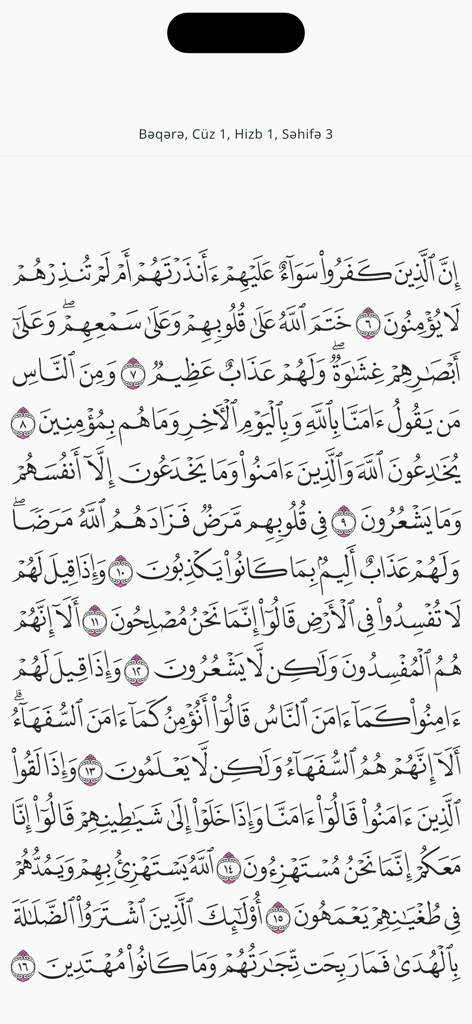 Bəqərə, Cüz 1, Hizb 1, Səhifə 3
إِنَّ ٱلَّذِينَ كَفَرُوا۟ سَوَآءٌ عَلَيْهِمْ ءَأَنذَرْتَهُمْ أَمْ لَمْ تُنذِرْهُمْ
لَا يُؤْمِنُونَ ٦ خَتَمَ ٱللَّهُ عَلَىٰ قُلُوبِهِمْ وَعَلَىٰ سَمْعِهِمْ ۖ وَعَلَىٰٓ
أَبْصَـٰرِهِمْ غِشَـٰوَةٌ ۖ وَلَهُمْ عَذَابٌ عَظِيمٌ ٧ وَمِنَ ٱلنَّاسِ
مَن يَقُولُ ءَامَنَّا بِٱللَّهِ وَبِٱلْيَوْمِ ٱلْـَٔاخِرِ وَمَا هُم بِمُؤْمِنِينَ ٨
يُخَـٰدِعُونَ ٱللَّهَ وَٱلَّذِينَ ءَامَنُوا۟ وَمَا يَخْدَعُونَ إِلَّآ أَنفُسَهُمْ
وَمَا يَشْعُرُونَ ٩ فِى قُلُوبِهِم مَّرَضٌ فَزَادَهُمُ ٱللَّهُ مَرَضًا ۖ
وَلَهُمْ عَذَابٌ أَلِيمٌۢ بِمَا كَانُوا۟ يَكْذِبُونَ ١٠ وَإِذَا قِيلَ لَهُمْ
لَا تُفْسِدُوا۟ فِى ٱلْأَرْضِ قَالُوٓا۟ إِنَّمَا نَحْنُ مُصْلِحُونَ ١١ أَلَآ إِنَّهُمْ
هُمُ ٱلْمُفْسِدُونَ وَلَـٰكِن لَّا يَشْعُرُونَ ١٢ وَإِذَا قِيلَ لَهُمْ
ءَامِنُوا۟ كَمَآ ءَامَنَ ٱلنَّاسُ قَالُوٓا۟ أَنُؤْمِنُ كَمَآ ءَامَنَ ٱلسُّفَهَآءُ ۗ
أَلَآ إِنَّهُمْ هُمُ ٱلسُّفَهَآءُ وَلَـٰكِن لَّا يَعْلَمُونَ ١٣ وَإِذَا لَقُوا۟
ٱلَّذِينَ ءَامَنُوا۟ قَالُوٓا۟ ءَامَنَّا وَإِذَا خَلَوْا۟ إِلَىٰ شَيَـٰطِينِهِمْ قَالُوٓا۟ إِنَّا
مَعَكُمْ إِنَّمَا نَحْنُ مُسْتَهْزِءُونَ ١٤ ٱللَّهُ يَسْتَهْزِئُ بِهِمْ وَيَمُدُّهُمْ
فِى طُغْيَـٰنِهِمْ يَعْمَهُونَ ١٥ أُو۟لَـٰٓئِكَ ٱلَّذِينَ ٱشْتَرَوُا۟ ٱلضَّلَـٰلَةَ
بِٱلْهُدَىٰ فَمَا رَبِحَت تِّجَـٰرَتُهُمْ وَمَا كَانُوا۟ مُهْتَدِينَ ١٦